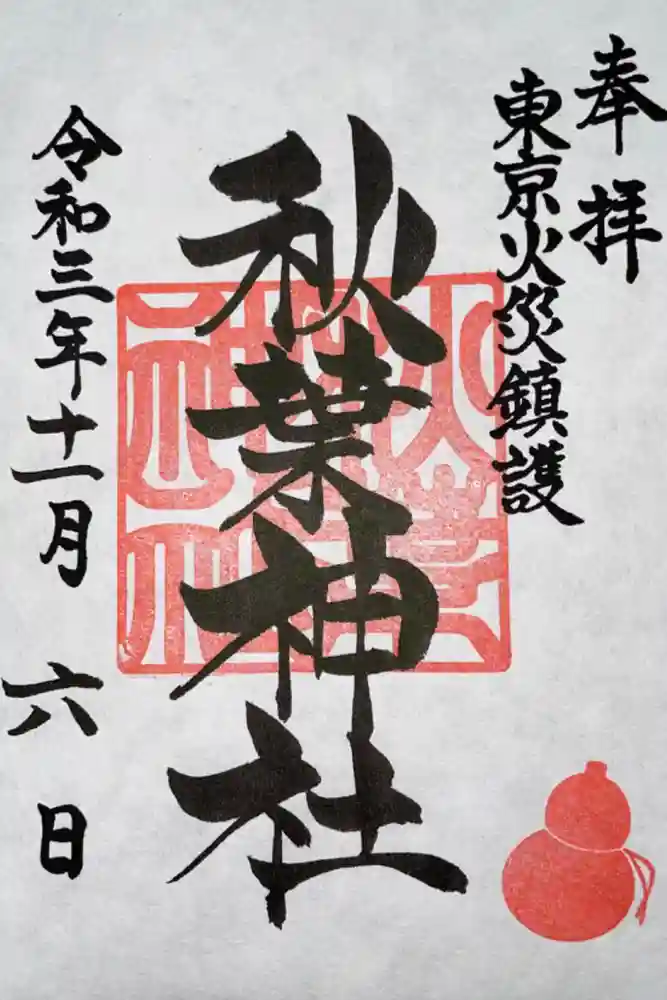 奉拝
東京火災鎮護
秋葉神社
令和三年十一月六日